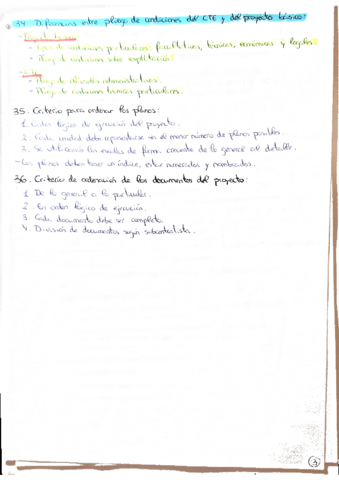 34. Diferencias entre pliego de condiciones del CTE y del proyecto básico:
- Proyecto básico:
• Pliego de condiciones particulares: facultativas, técnicas, económicas y legales.
• Pliego de condiciones sobre
- CTE:
• Pliego de cláusulas administrativas.
• Pliego de condiciones técnicas particulares.
35. Criterio para ordenar los planos:
1. Orden lógico de ejecución del proyecto.
2. Cada unidad debe reproducirse en el menor número de planos posibles.
3. Se utilizarán las escalas de forma de lo general al detalle.
- Los planos deben tener un índice, estar numerados y nombrados.
36. Criterio de ordenación de los documentos del proyecto:
1. De lo general a lo particular.
2. En orden lógico de ejecución.
3. Cada documento debe ser completo.
4. División de documentos según subcontratista.
3